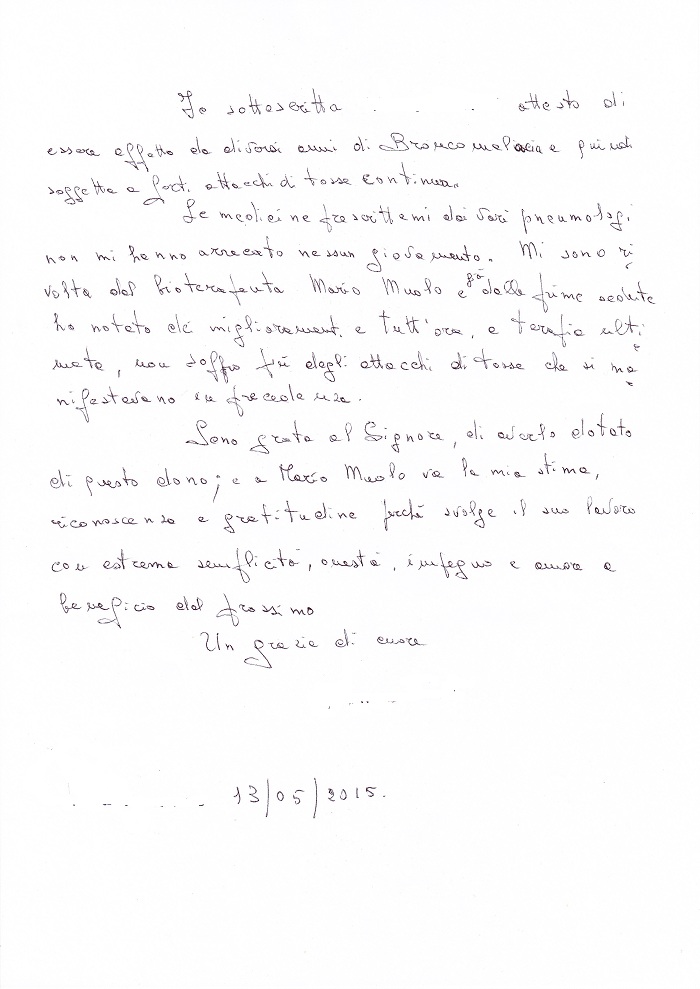 Io sottoscritta . . . attesto di
essere affetta da diversi anni di Broncomalacia e quindi
soggetta a forti attacchi di tosse continua.
Le medicine prescrittemi dai vari pneumologi
non mi hanno arrecato nessun giovamento. Mi sono ri
volta dal bioterapeuta Mario Muolo e già dalle prime sedute
ho notato dei miglioramenti e tutt'ora, a terapia ulti
mata, non soffro più degli attacchi di tosse che si ma
nifestavano in precedenza.
Sono grata al Signore, di averlo dotato
di questo dono; e a Mario Muolo va la mia stima,
riconoscenza e gratitudine perché svolge il suo lavoro
con estrema semplicità, onestà, impegno e amore a
beneficio del prossimo
Un grazie di cuore
13/05/2015.